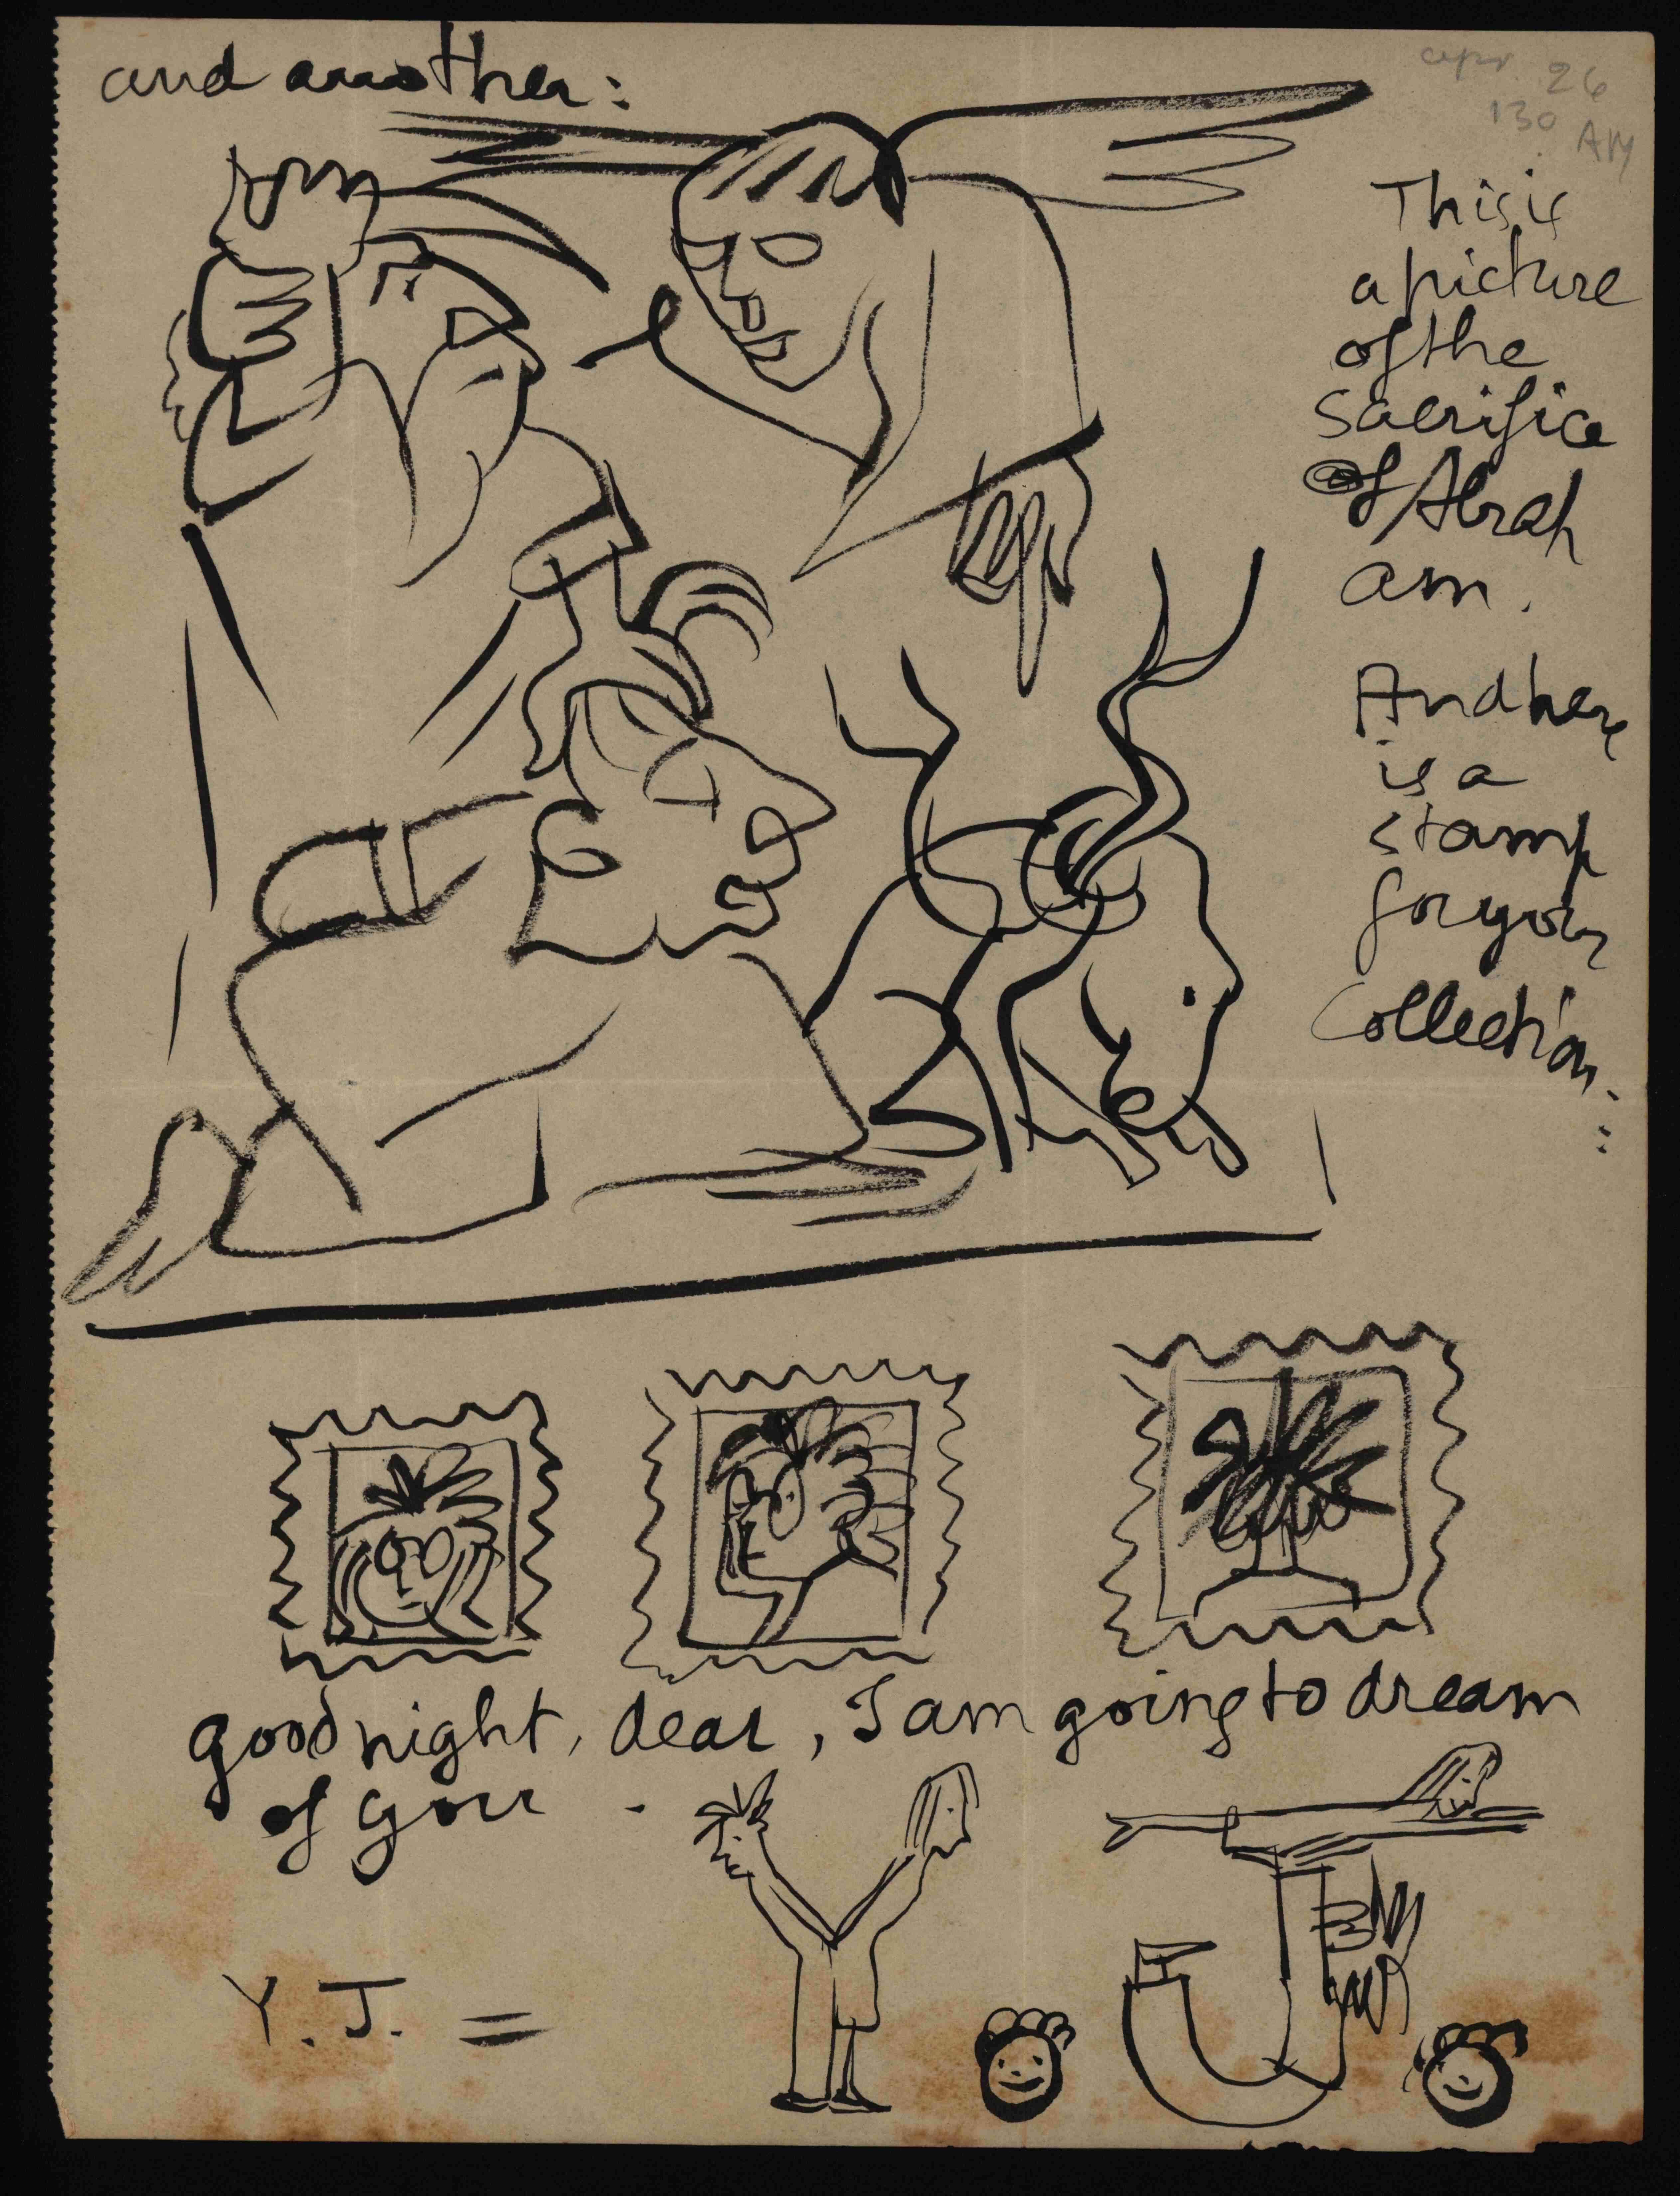 and another:
apr. 26
130 AM
This is
a picture
of the
Sacrifice
of Abrah
am.
And here
is a
stamp
for your
Collection.
good night, dear, I am going to dream
of you.
Y. J. =